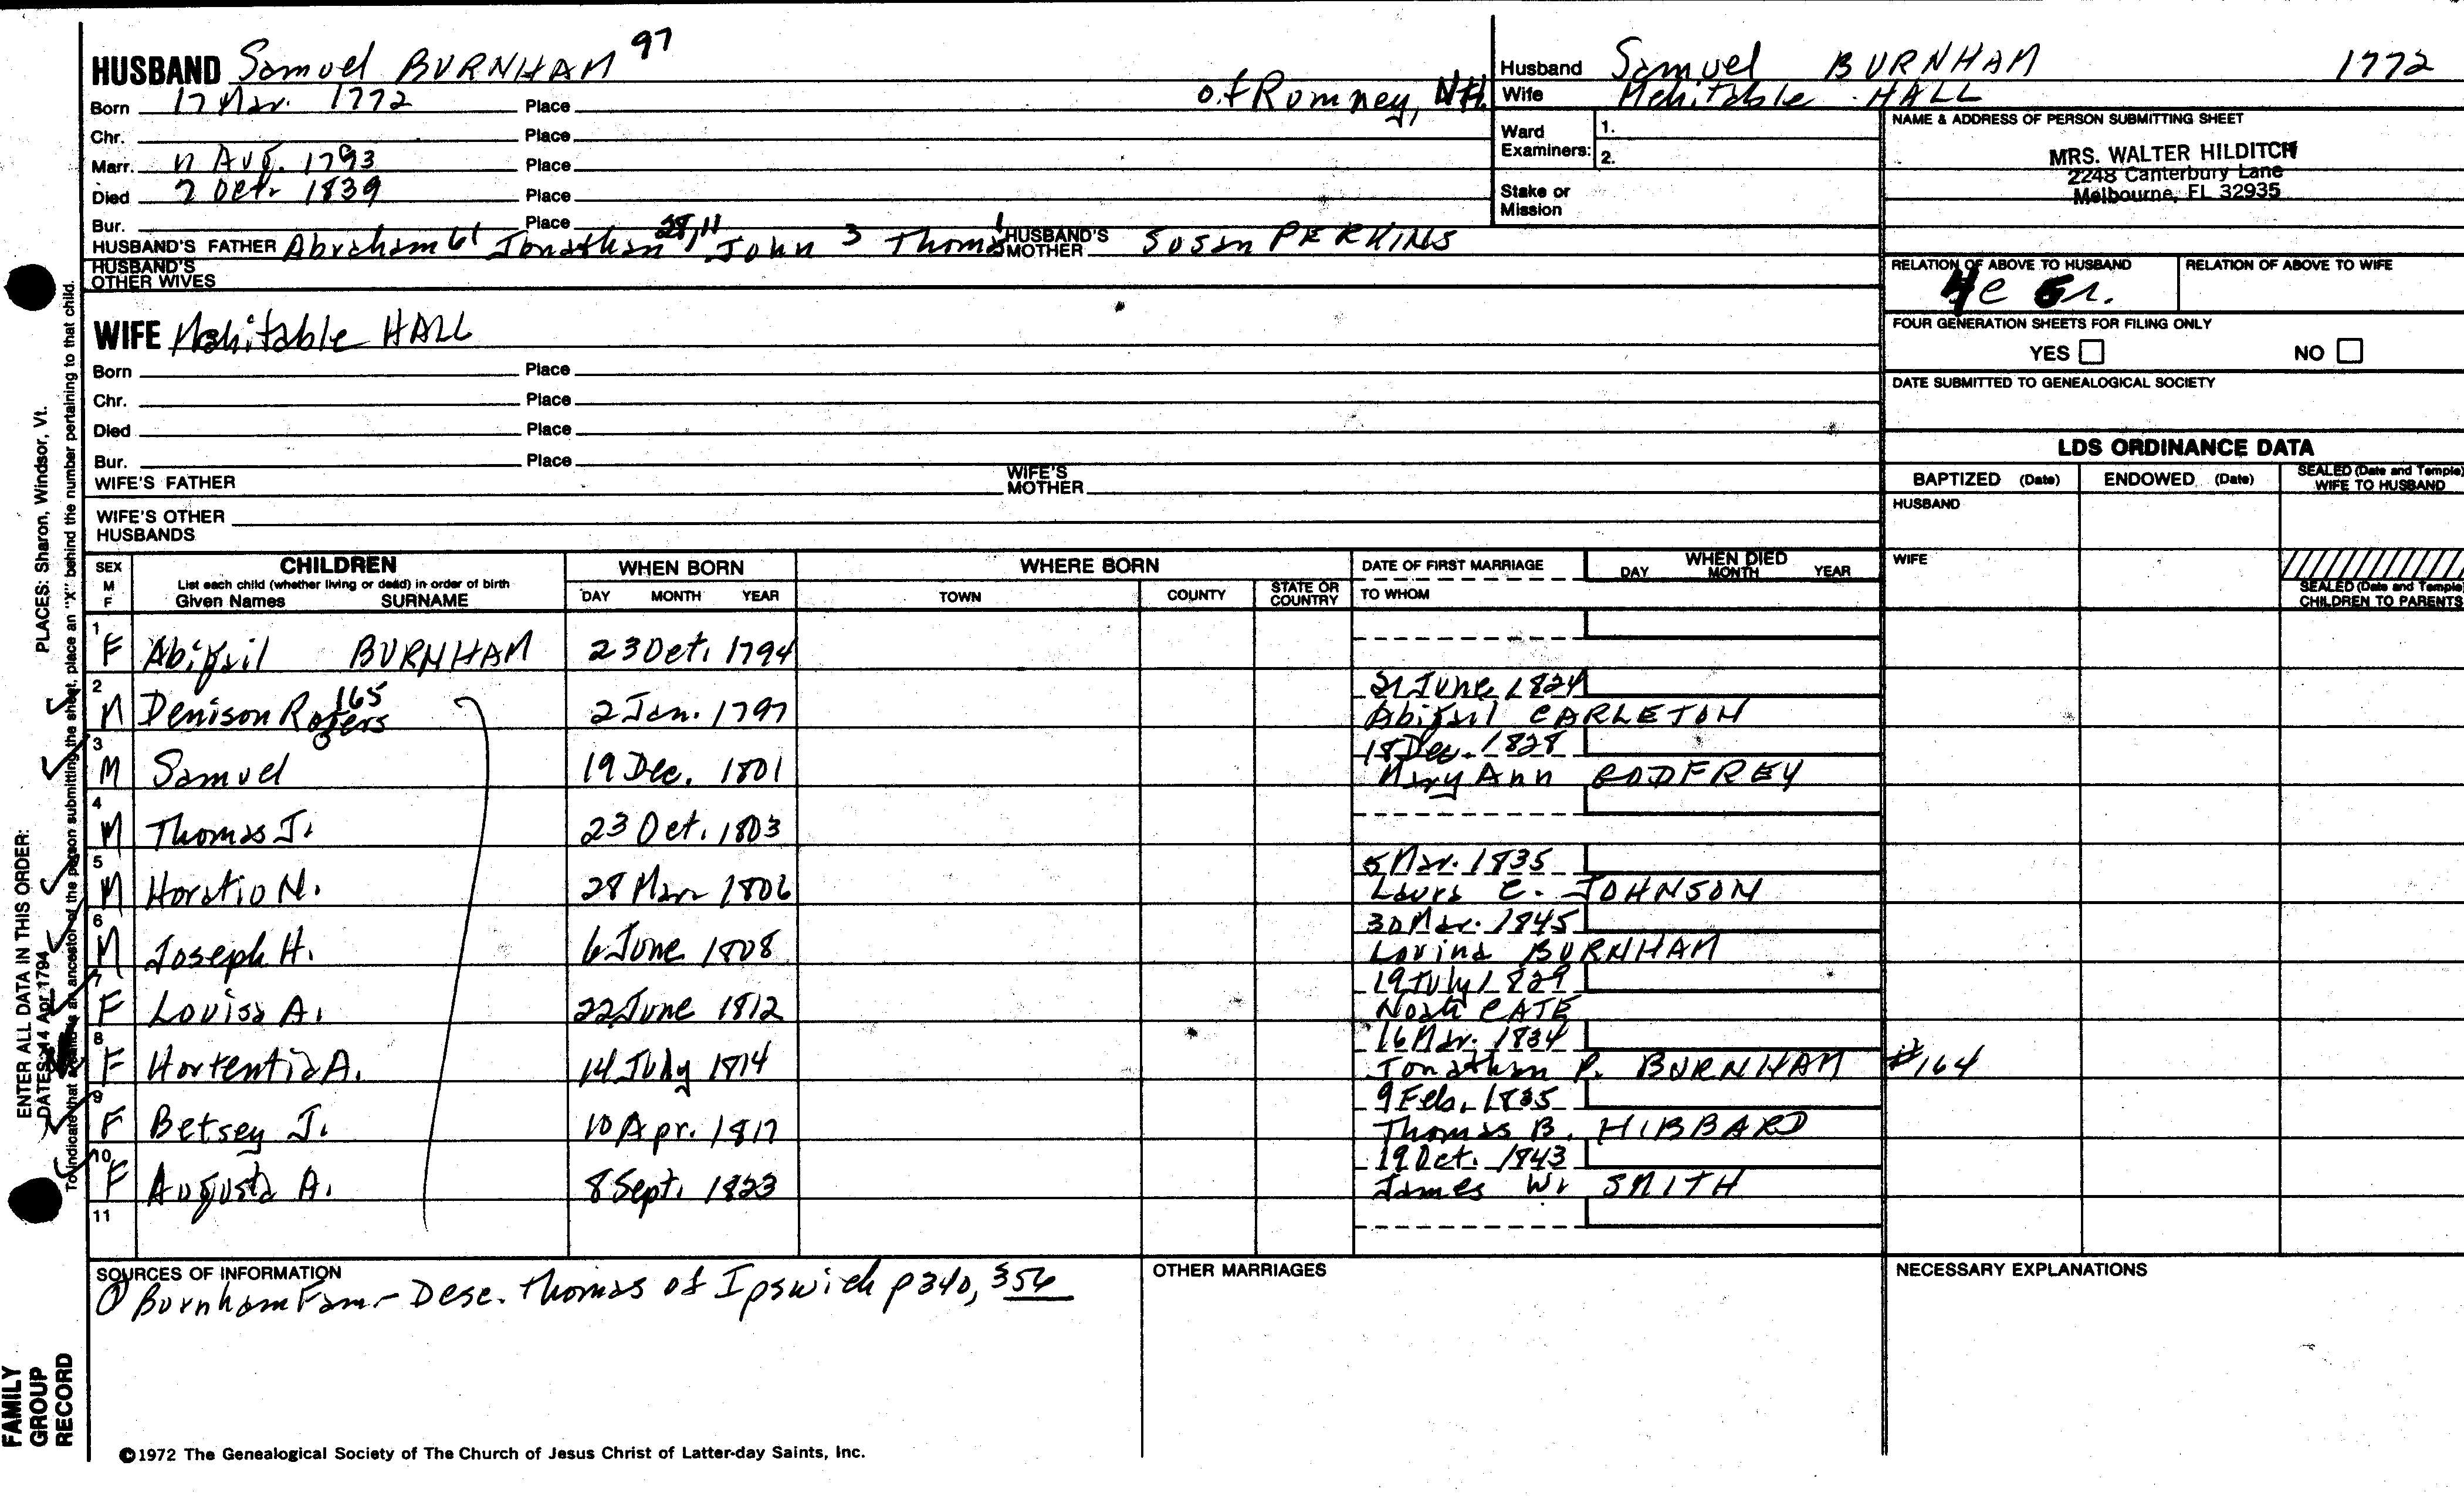 HUSBAND Samuel BURNHAM 97
of Romney, NH.
Born 17 Mar. 1772 Place
Chr. Place
Marr. 11 Aug. 1793 Place
Died 2 Oct. 1839 Place
Bur. Place
HUSBAND'S FATHER Abraham 61 Jonathan 28, 11 John 3 Thomas 1 HUSBAND'S MOTHER Susan PERKINS
HUSBAND'S OTHER WIVES
WIFE Mehitable HALL
Born Place
Chr. Place
Died Place
Bur. Place
WIFE'S FATHER WIFE'S MOTHER
WIFE'S OTHER HUSBANDS
Husband Samuel BURNHAM 1772
Wife Mehitable HALL
Ward Examiners: 1. 2.
Stake or Mission
NAME & ADDRESS OF PERSON SUBMITTING SHEET
MRS. WALTER HILDITCH
2248 Canterbury Lane
Melbourne, FL 32935
RELATION OF ABOVE TO HUSBAND RELATION OF ABOVE TO WIFE
4c 6r.
FOUR GENERATION SHEETS FOR FILING ONLY
YES NO
DATE SUBMITTED TO GENEALOGICAL SOCIETY
LDS ORDINANCE DATA
BAPTIZED (Date) ENDOWED (Date) SEALED (Date and Temple) WIFE TO HUSBAND
HUSBAND
WIFE
SEALED (Date and Temple) CHILDREN TO PARENTS
SEX M F
CHILDREN
List each child (whether living or dead) in order of birth
Given Names SURNAME
WHEN BORN
DAY MONTH YEAR
WHERE BORN
TOWN COUNTY STATE OR COUNTRY
DATE OF FIRST MARRIAGE
TO WHOM
WHEN DIED
DAY MONTH YEAR
1 F Abigail BURNHAM 23 Oct. 1794
2 M Denison Rogers 165 2 Jan. 1797 21 June 1824 Abigail CARLETON
3 M Samuel 19 Dec. 1801 18 Dec. 1828 Mary Ann GODFREY
4 M Thomas J. 23 Oct. 1803
5 M Horatio N. 28 Mar 1806 5 Mar. 1835 Laura C. JOHNSON
6 M Joseph H. 6 June 1808 30 Mar. 1845 Lovina BURNHAM
7 F Louisa A. 22 June 1812 19 July 1829 Noah CATE
8 F Hortentia A. 14 July 1814 16 Mar. 1834 Jonathan P. BURNHAM #164
9 F Betsey J. 10 Apr. 1817 9 Feb. 1835 Thomas B. HIBBARD
10 F Augusta A. 8 Sept. 1823 19 Oct. 1843 James W. SMITH
11
SOURCES OF INFORMATION
① Burnham Fam - Desc. Thomas of Ipswich p 340, 356
OTHER MARRIAGES
NECESSARY EXPLANATIONS
©1972 The Genealogical Society of The Church of Jesus Christ of Latter-day Saints, Inc.
FAMILY GROUP RECORD
ENTER ALL DATA IN THIS ORDER:
DATES: 14 Apr 1794
PLACES: Sharon, Windsor, Vt.
To indicate that a child is an ancestor of the person submitting the sheet, place an "X" behind the number pertaining to that child.